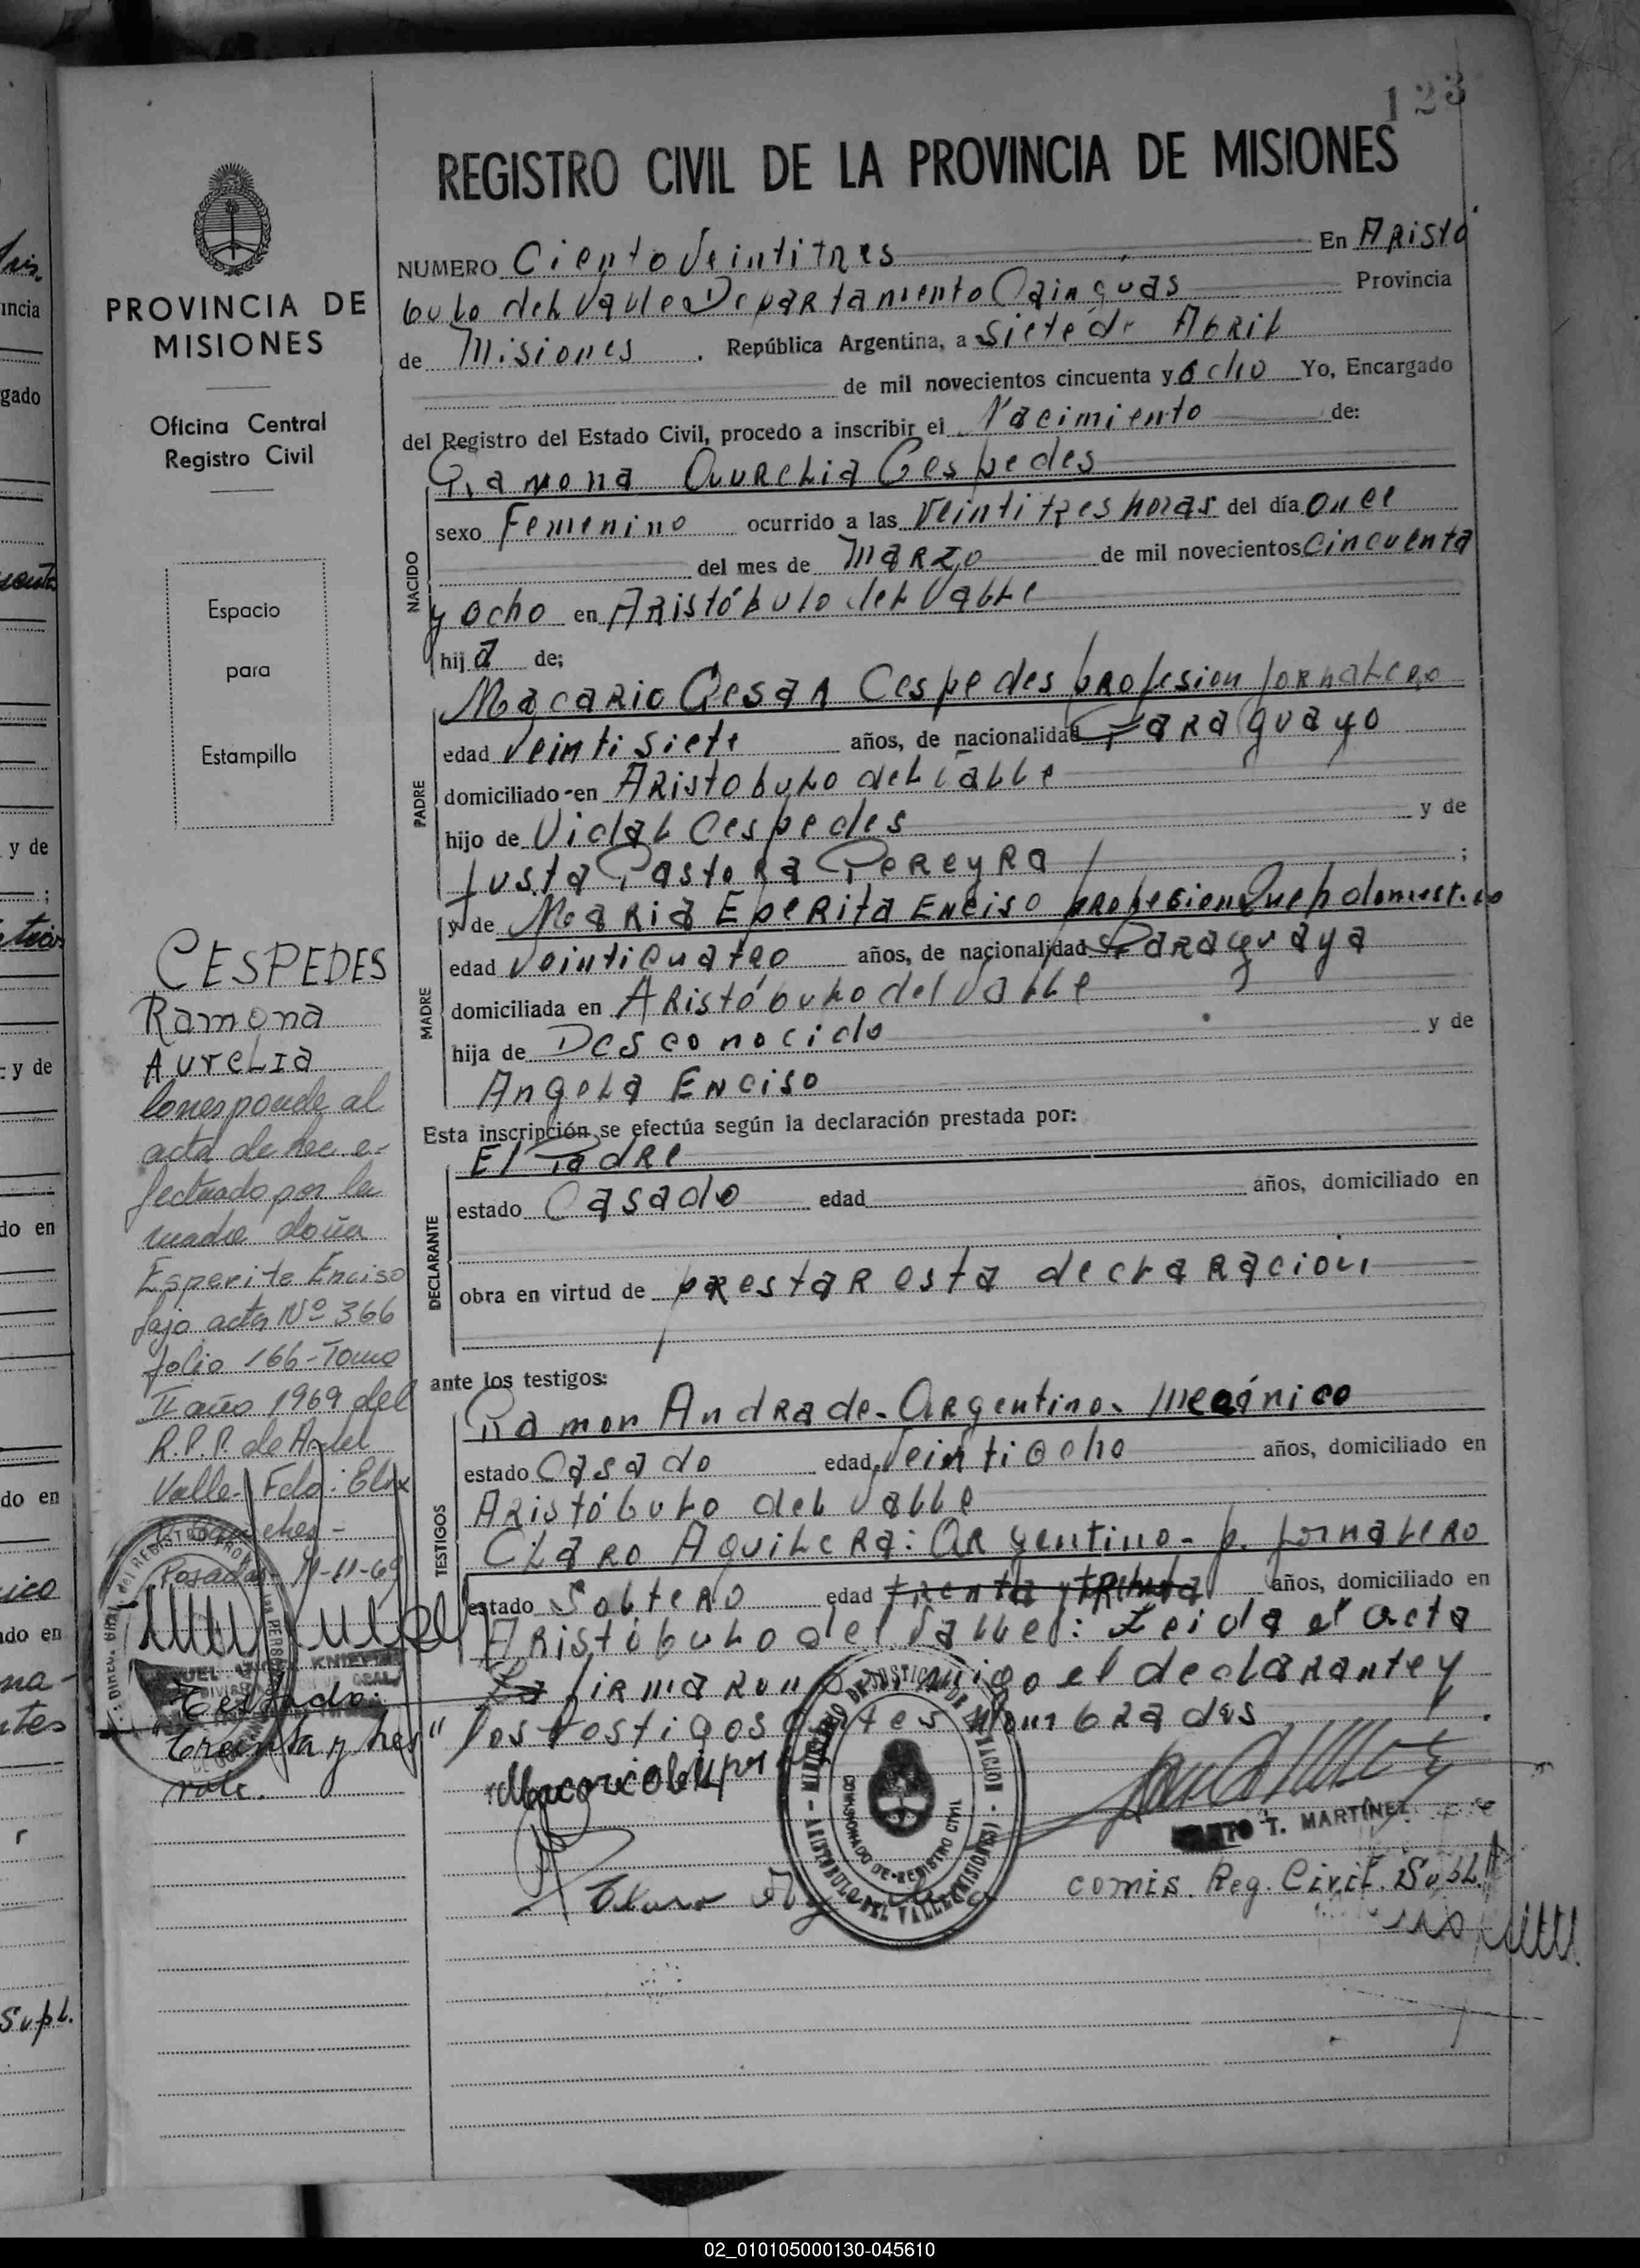 123
REGISTRO CIVIL DE LA PROVINCIA DE MISIONES
NUMERO Ciento Veintitres En Aristó
bulo del Valle Departamento Cainguas Provincia
de Misiones . República Argentina, a Siete de Abril
de mil novecientos cincuenta y ocho Yo, Encargado
del Registro del Estado Civil, procedo a inscribir el Nacimiento de:
Ramona Aurelia Cespedes
sexo Femenino ocurrido a las Veintitres horas del día once
del mes de Marzo de mil novecientos cincuenta
y ocho en Aristóbulo del Valle
hija de;
NACIDO
Macario Cesar Cespedes profesion jornalero
edad Veintisiete años, de nacionalidad Paraguayo
domiciliado en Aristobulo del Valle
hijo de Vidal Cespedes y de
Justa Pastora Pereyra ;
PADRE
y de Maria Eperita Enciso profesion Queh domest.co
edad Veinticuatro años, de nacionalidad Paraguaya
domiciliada en Aristóbulo del Valle
hija de Desconocido y de
Angela Enciso
MADRE
Esta inscripción se efectúa según la declaración prestada por:
El Padre
estado Casado edad años, domiciliado en
obra en virtud de prestar esta declaracion
DECLARANTE
ante los testigos:
Ramon Andrade - Argentino - Mecánico
estado Casado edad Veintiocho años, domiciliado en
Aristóbulo del Valle
Claro Aguilera: Argentino - p. jornalero
estado Soltero edad treinta y treinta años, domiciliado en
Aristobulo del Valle: Leida el acta
La firmaron conmigo el declarante y
los testigos antes nombrados
TESTIGOS
Macario Cespedes
Claro
MINISTERIO DE JUSTICIA DE LA NACION
COMISIONADO DE REGISTRO CIVIL
ARISTOBULO DEL VALLE (MISIONES)
T. MARTINEZ
comis. Reg. Civil. Supl.
PROVINCIA DE
MISIONES
Oficina Central
Registro Civil
Espacio
para
Estampilla
CESPEDES
Ramona
Aurelia
Corresponde al
acta de rec e-
fectuado por la
madre doña
Esperite Enciso
bajo acta Nº 366
folio 166 - Tomo
II año 1969 del
R.P.P. de A. del
Valle - Fdo: Elsa
Posadas 11-11-69
Testado:
"treinta y tres"
vale.
ncia
gado
y de
;
y de
do en
do en
do en
Supl.
02_010105000130-045610